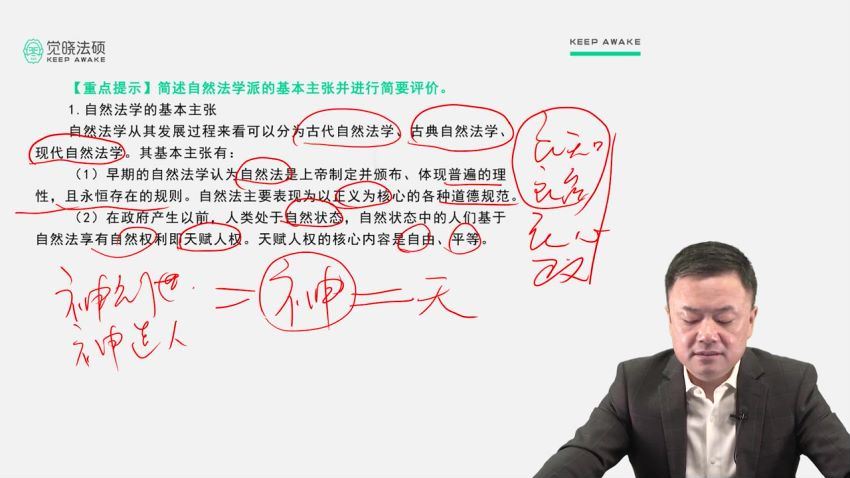 觉晓法硕
KEEP AWAKE
KEEP AWAKE
【重点提示】简述自然法学派的基本主张并进行简要评价。
1.自然法学的基本主张
自然法学从其发展过程来看可以分为古代自然法学、古典自然法学、
现代自然法学。其基本主张有：
（1）早期的自然法学认为自然法是上帝制定并颁布、体现普遍的理
性，且永恒存在的规则。自然法主要表现为以正义为核心的各种道德规范。
（2）在政府产生以前，人类处于自然状态，自然状态中的人们基于
自然法享有自然权利即天赋人权。天赋人权的核心内容是自由、平等。
神创世
神造人
=神=天